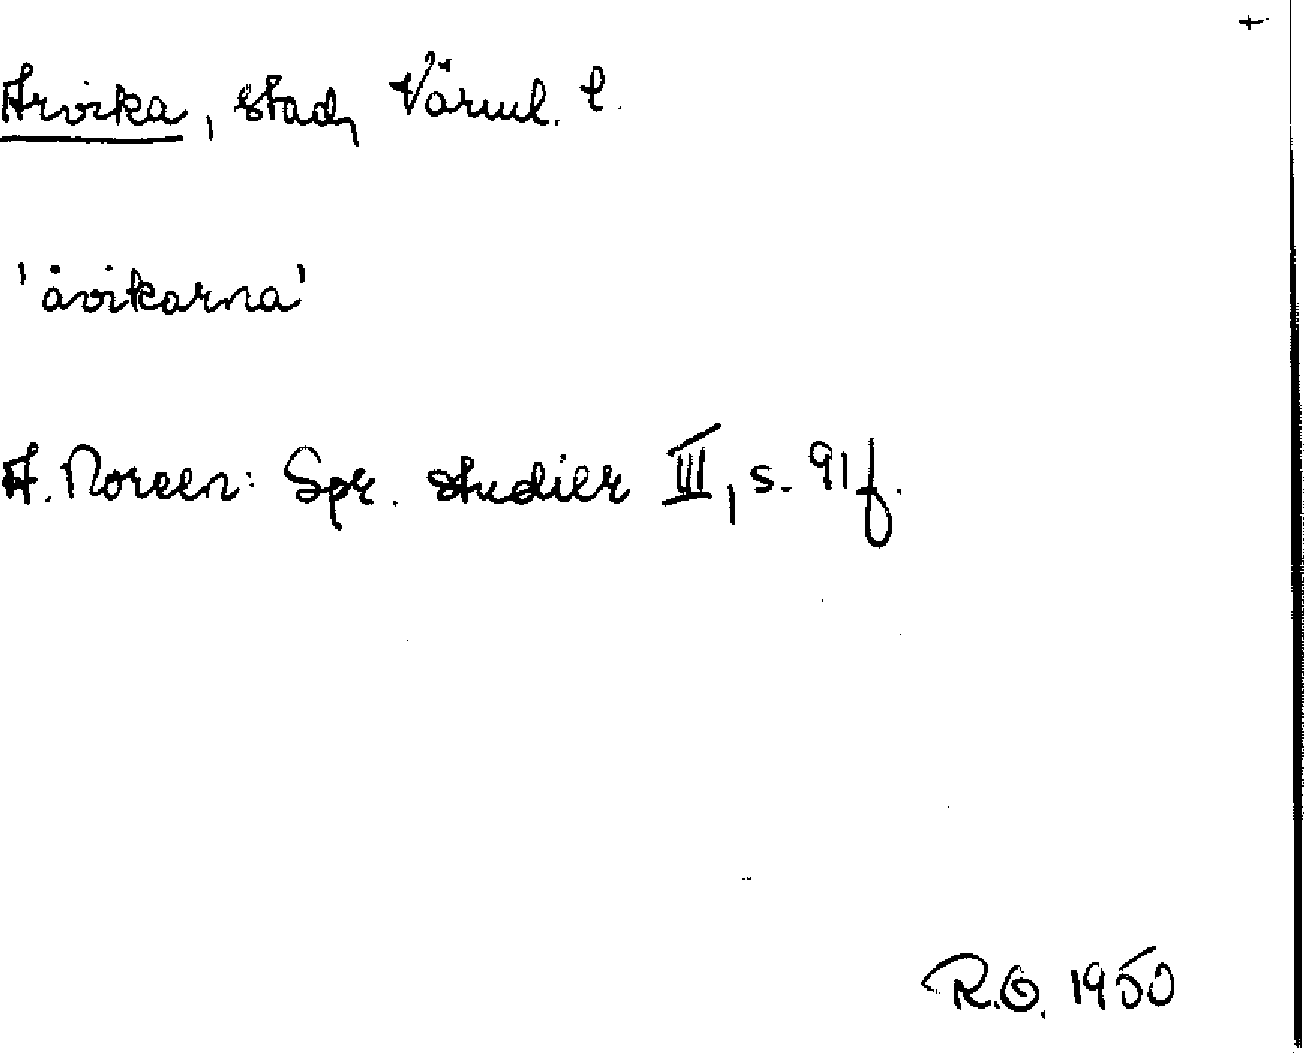 +
Arvika, stad, Värml. l.
'åvikarna'
A. Noreen: Spr. studier III, s. 91 f.
R.O. 1950